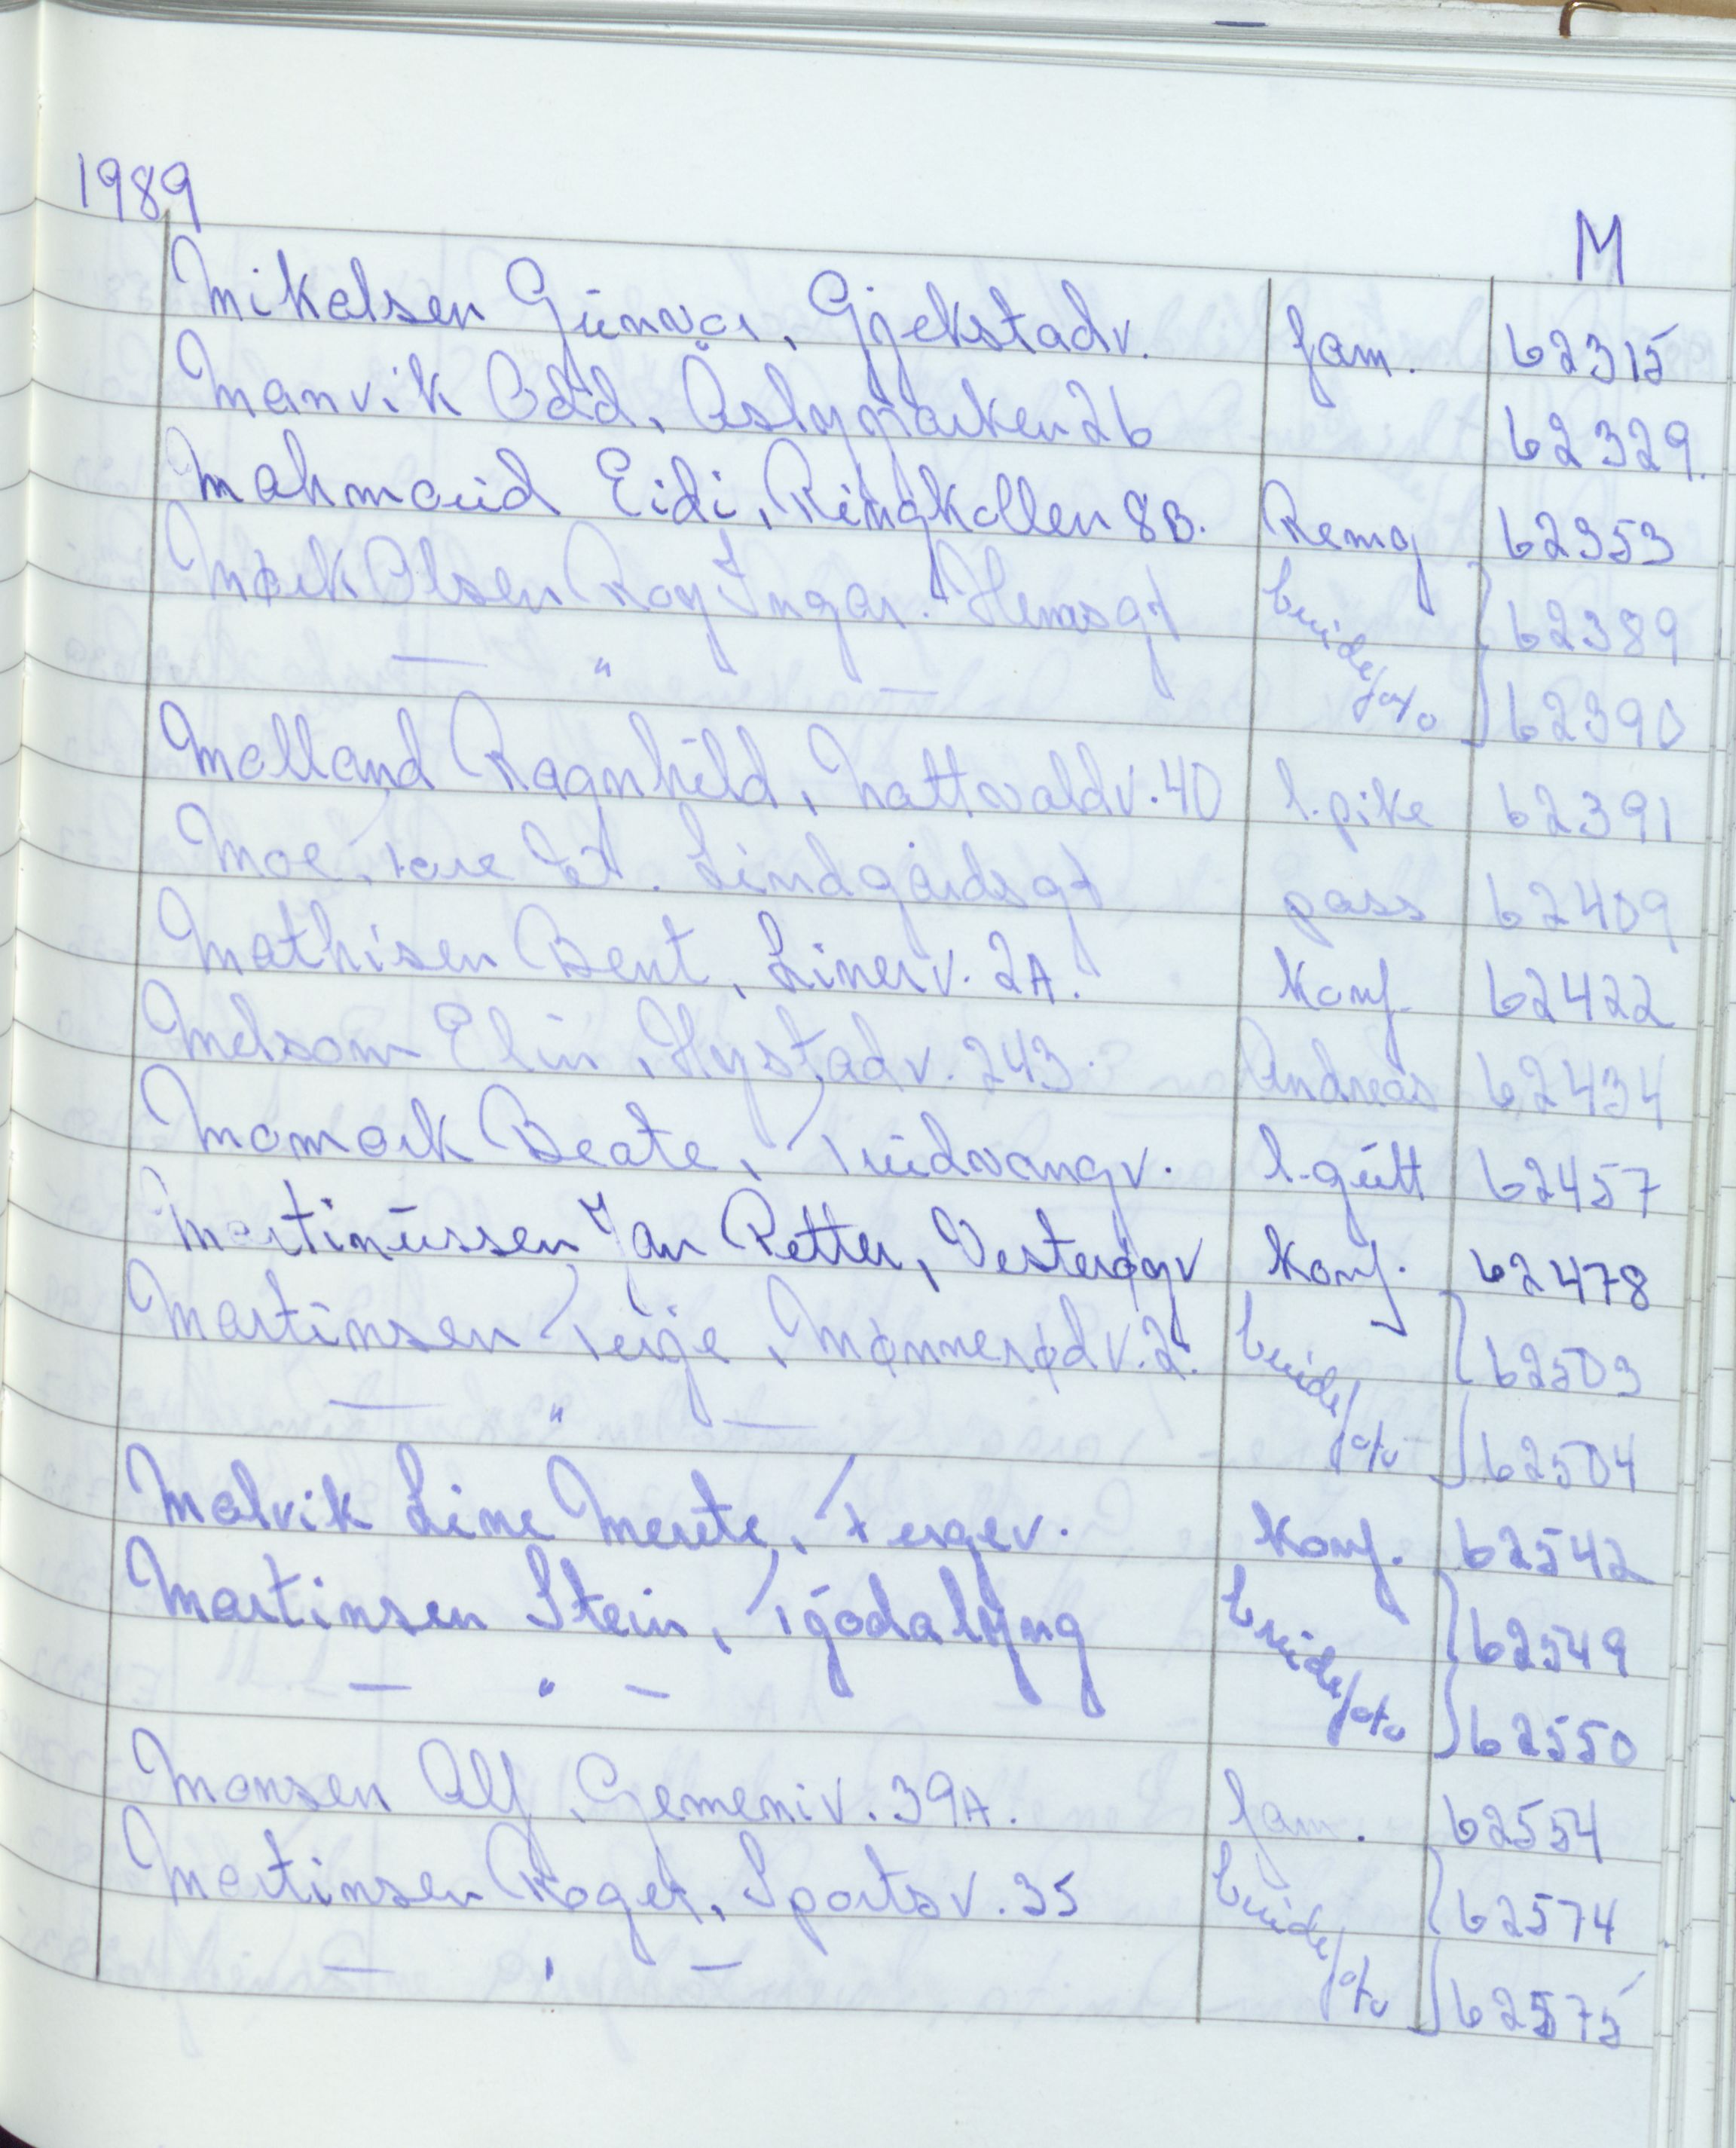 1989
M
Mikalsen Gunvor, Gjekstadv. fam. 62315
Manvik Odd, Åslymarken 26 62329.
Mahmoud Eidi, Ringkollen 8B. Remg 62353
Mørk Olsen Roy Ingar. Hemsgt brudef/oto 62389
— " — 62390
Molland Ragnhild, Nattvaldv. 40 l.pike 62391
Moe, Tore Lindgårdsgt pass 62409
Mathisen Bent, Linerv. 2A. Konf. 62422
Melsom Elin, Hystadv. 243. Andreas 62434
Momrak Beate, Tuidvangv. l.gutt 62457
Martinussen Jan Petter, Vesterøyv Konf. 62478
Martinsen Terje, Mønnerødv. 2. brudef/oto 62503
— " — 62504
Malvik Line Merete, Torgerv. Konf. 62542
Martinsen Stein, Tjodalyng brudef/oto 62549
— " — 62550
Monsen Alf, Gemeniv. 39A. fam. 62554
Martinsen Roger, Sportsv. 35 brudef/oto 62574
— " — 62575